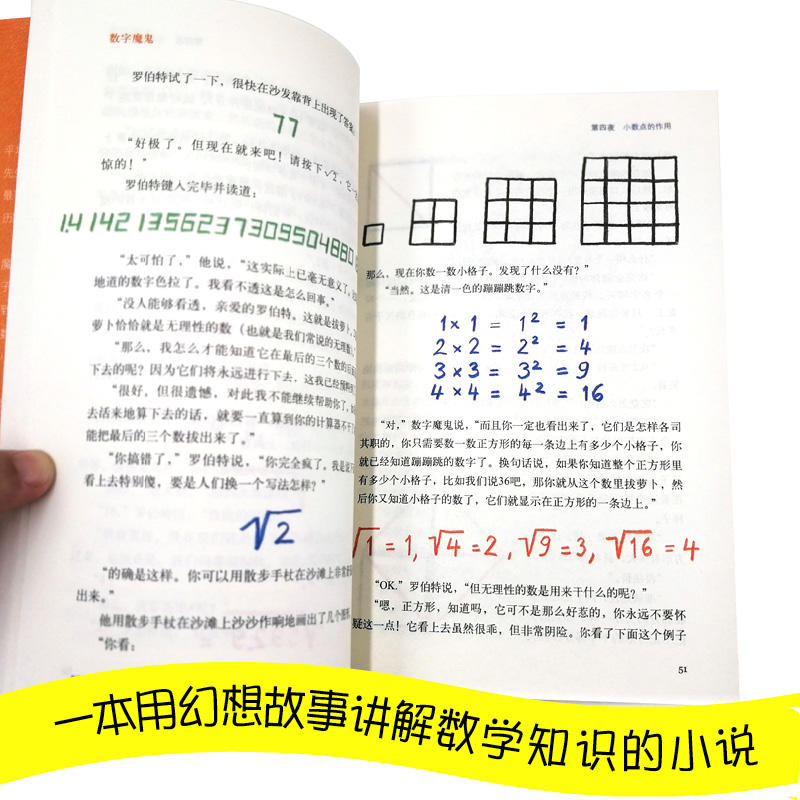 数字魔鬼
罗伯特试了一下,很快在沙发靠背上出现了答案:
77
“好极了。但现在就来吧!请按下√2,它一定
惊的!”
罗伯特键入完毕并读道:
1.4142135623730950488 0
“太可怕了,”他说,“这实际上已毫无意义了。
地道的数字色拉了。我看不透这是怎么回事。”
“没人能够看透,亲爱的罗伯特。这就是拔萝卜,
萝卜恰恰就是无理性的数(也就是我们常说的无理数)
“那么,我怎么才能知道它在最后的三个数的后
下去的呢?因为它们将永远进行下去,这我已经预
“很好,但很遗憾,对此我不能继续帮助你了,
去活来地算下去的话,就要一直算到你的计算器不
能把最后的三个数拔出来了。”
“你搞错了,”罗伯特说,“你完全疯了,我是说
看上去特别傻,要是人们换一个写法怎样?”
√2
“的确是这样。你可以用散步手杖在沙滩上非常
出来。”
他用散步手杖在沙滩上沙沙作响地画出了几个图
“你看:
第四夜 小数点的作用
那么,现在你数一数小格子。发现了什么没有?”
“当然。这是清一色的蹦蹦跳数字。”
1×1 = 1² = 1
2×2 = 2² = 4
3×3 = 3² = 9
4×4 = 4² = 16
“对,”数字魔鬼说,“而且你一定也看出来了,它们是怎样各司
其职的,你只需要数一数正方形的每一条边上有多少个小格子,你
就已经知道蹦蹦跳的数字了。换句话说,如果你知道整个正方形里
有多少个小格子,比如我们说36吧,那你就从这个数里拔萝卜,然
后你又知道小格子的数了,它们就显示在正方形的一条边上。”
√1 = 1, √4 = 2, √9 = 3, √16 = 4
“OK.”罗伯特说,“但无理性的数是用来干什么的呢?”
“嗯,正方形,知道吗,它可不是那么好惹的,你永远不要怀
疑这一点!它看上去虽然很乖,但非常阴险。你看了下面这个例子
51
一本用幻想故事讲解数学知识的小说